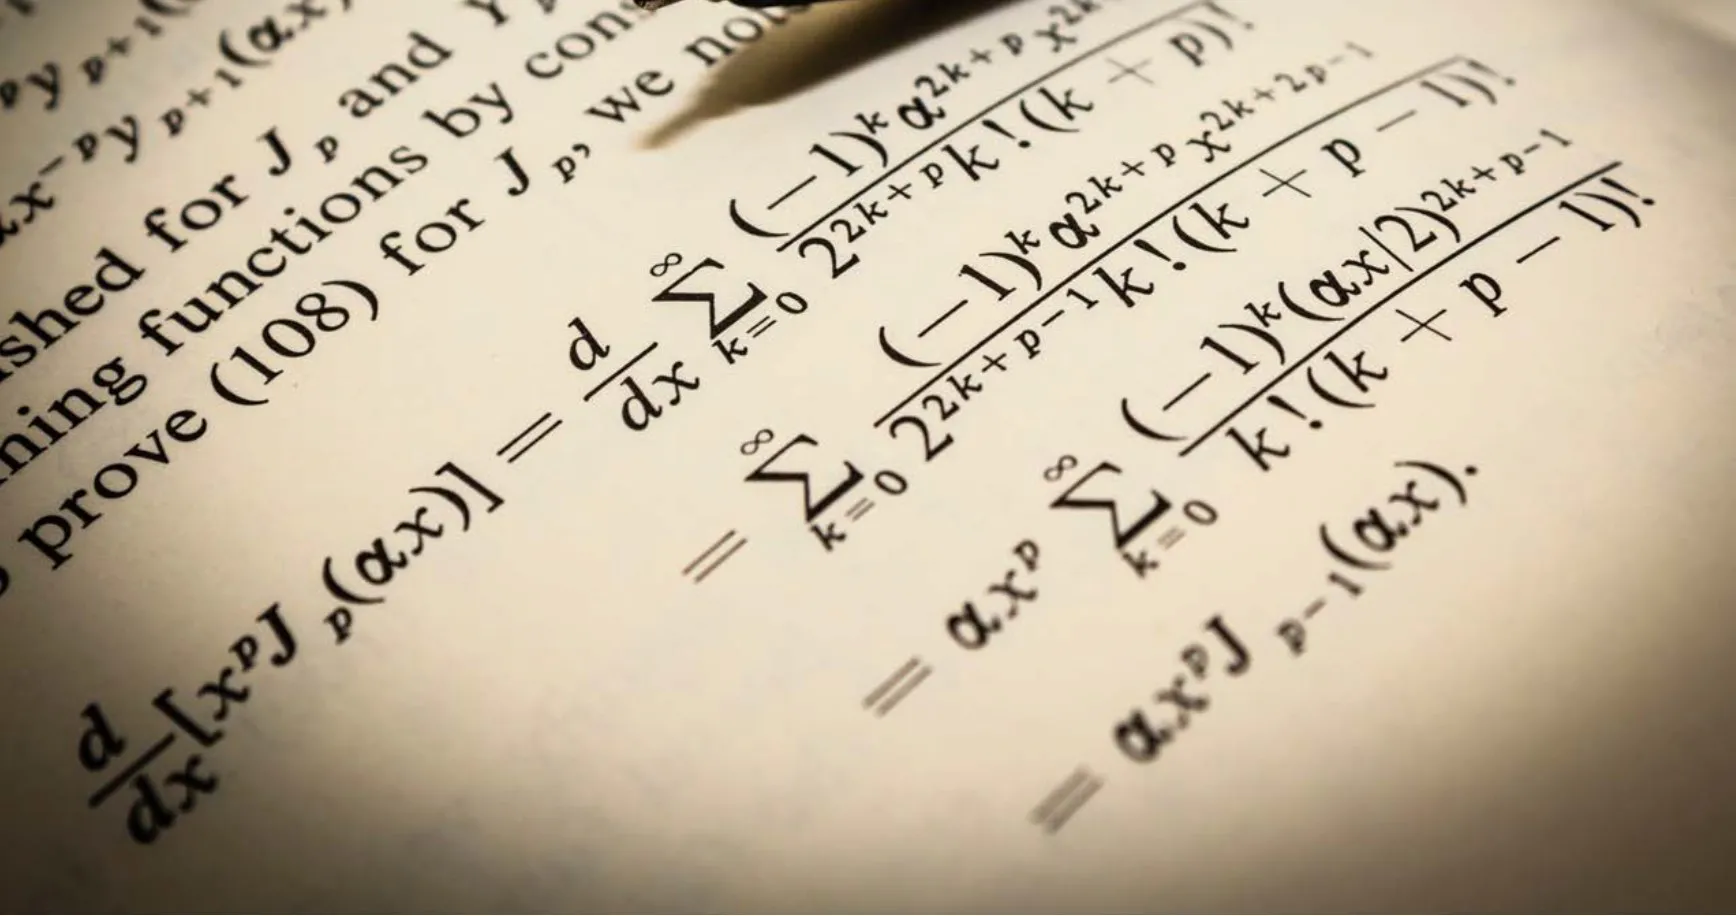 y p+1(
x⁻ᵖy p+1(αx)
shed for J p and
ning functions by cons
prove (108) for J p, we no
d/dx [xᵖJ p(αx)] = d/dx ∑_{k=0}^{∞} (−1)ᵏ α^{2k+p} x^{2k / 2^{2k+p} k!(k + p)!
= ∑_{k=0}^{∞} (−1)ᵏ α^{2k+p} x^{2k+2p−1} / 2^{2k+p−1} k!(k + p − 1)!
= αxᵖ ∑_{k=0}^{∞} (−1)ᵏ (αx/2)^{2k+p−1} / k!(k + p − 1)!
= αxᵖJ p−1(αx).